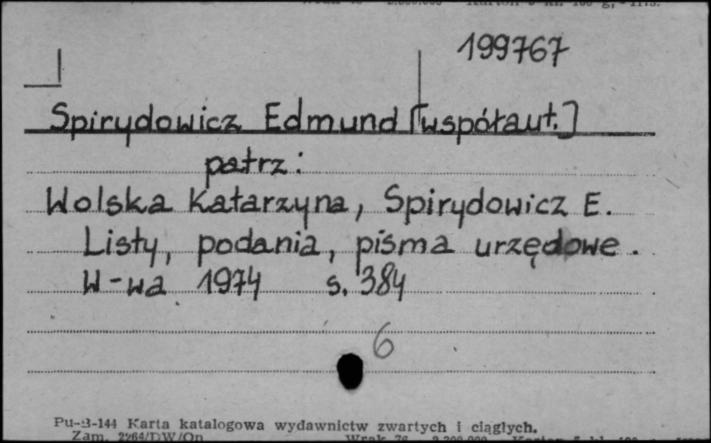 199767
Spirydowicz Edmund [współaut.]
patrz:
Wolska Katarzyna, Spirydowicz E.
Listy, podania, pisma urzędowe.
W-wa 1974 s. 384
6
Pu-3-144 Karta katalogowa wydawnictw zwartych i ciągłych.
Zam.